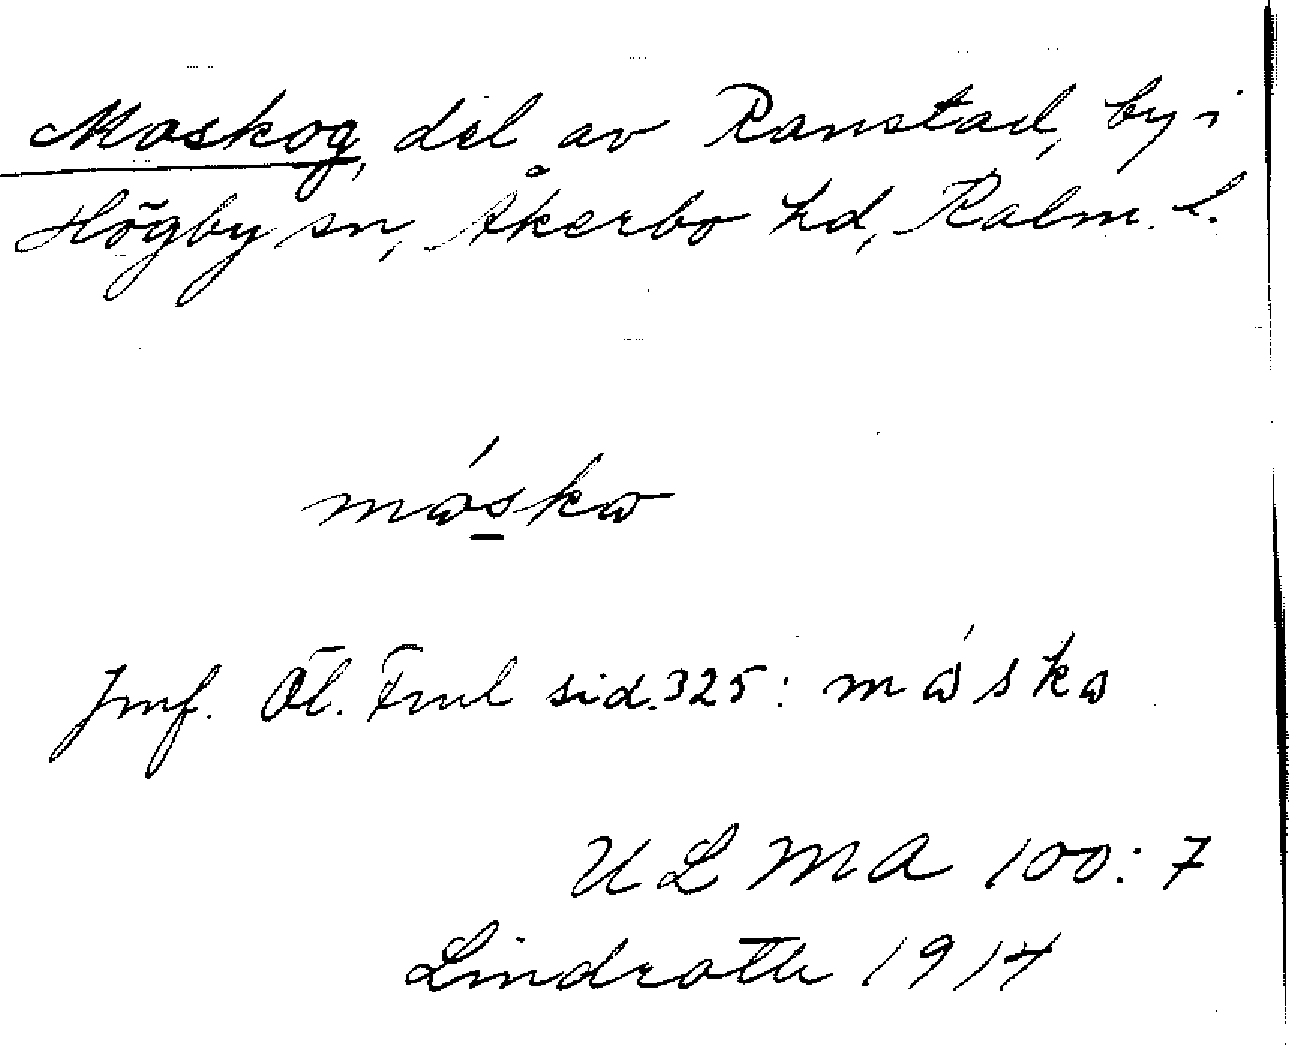 Moskog, del av Ranstad, by i
Högby sn, Åkerbo hd, Kalm. l.
mɷ́skɷ
Jmf. Öl. Fml sid. 325: mɷ́skɷ
ULMA 100:7
Lindroth 1914